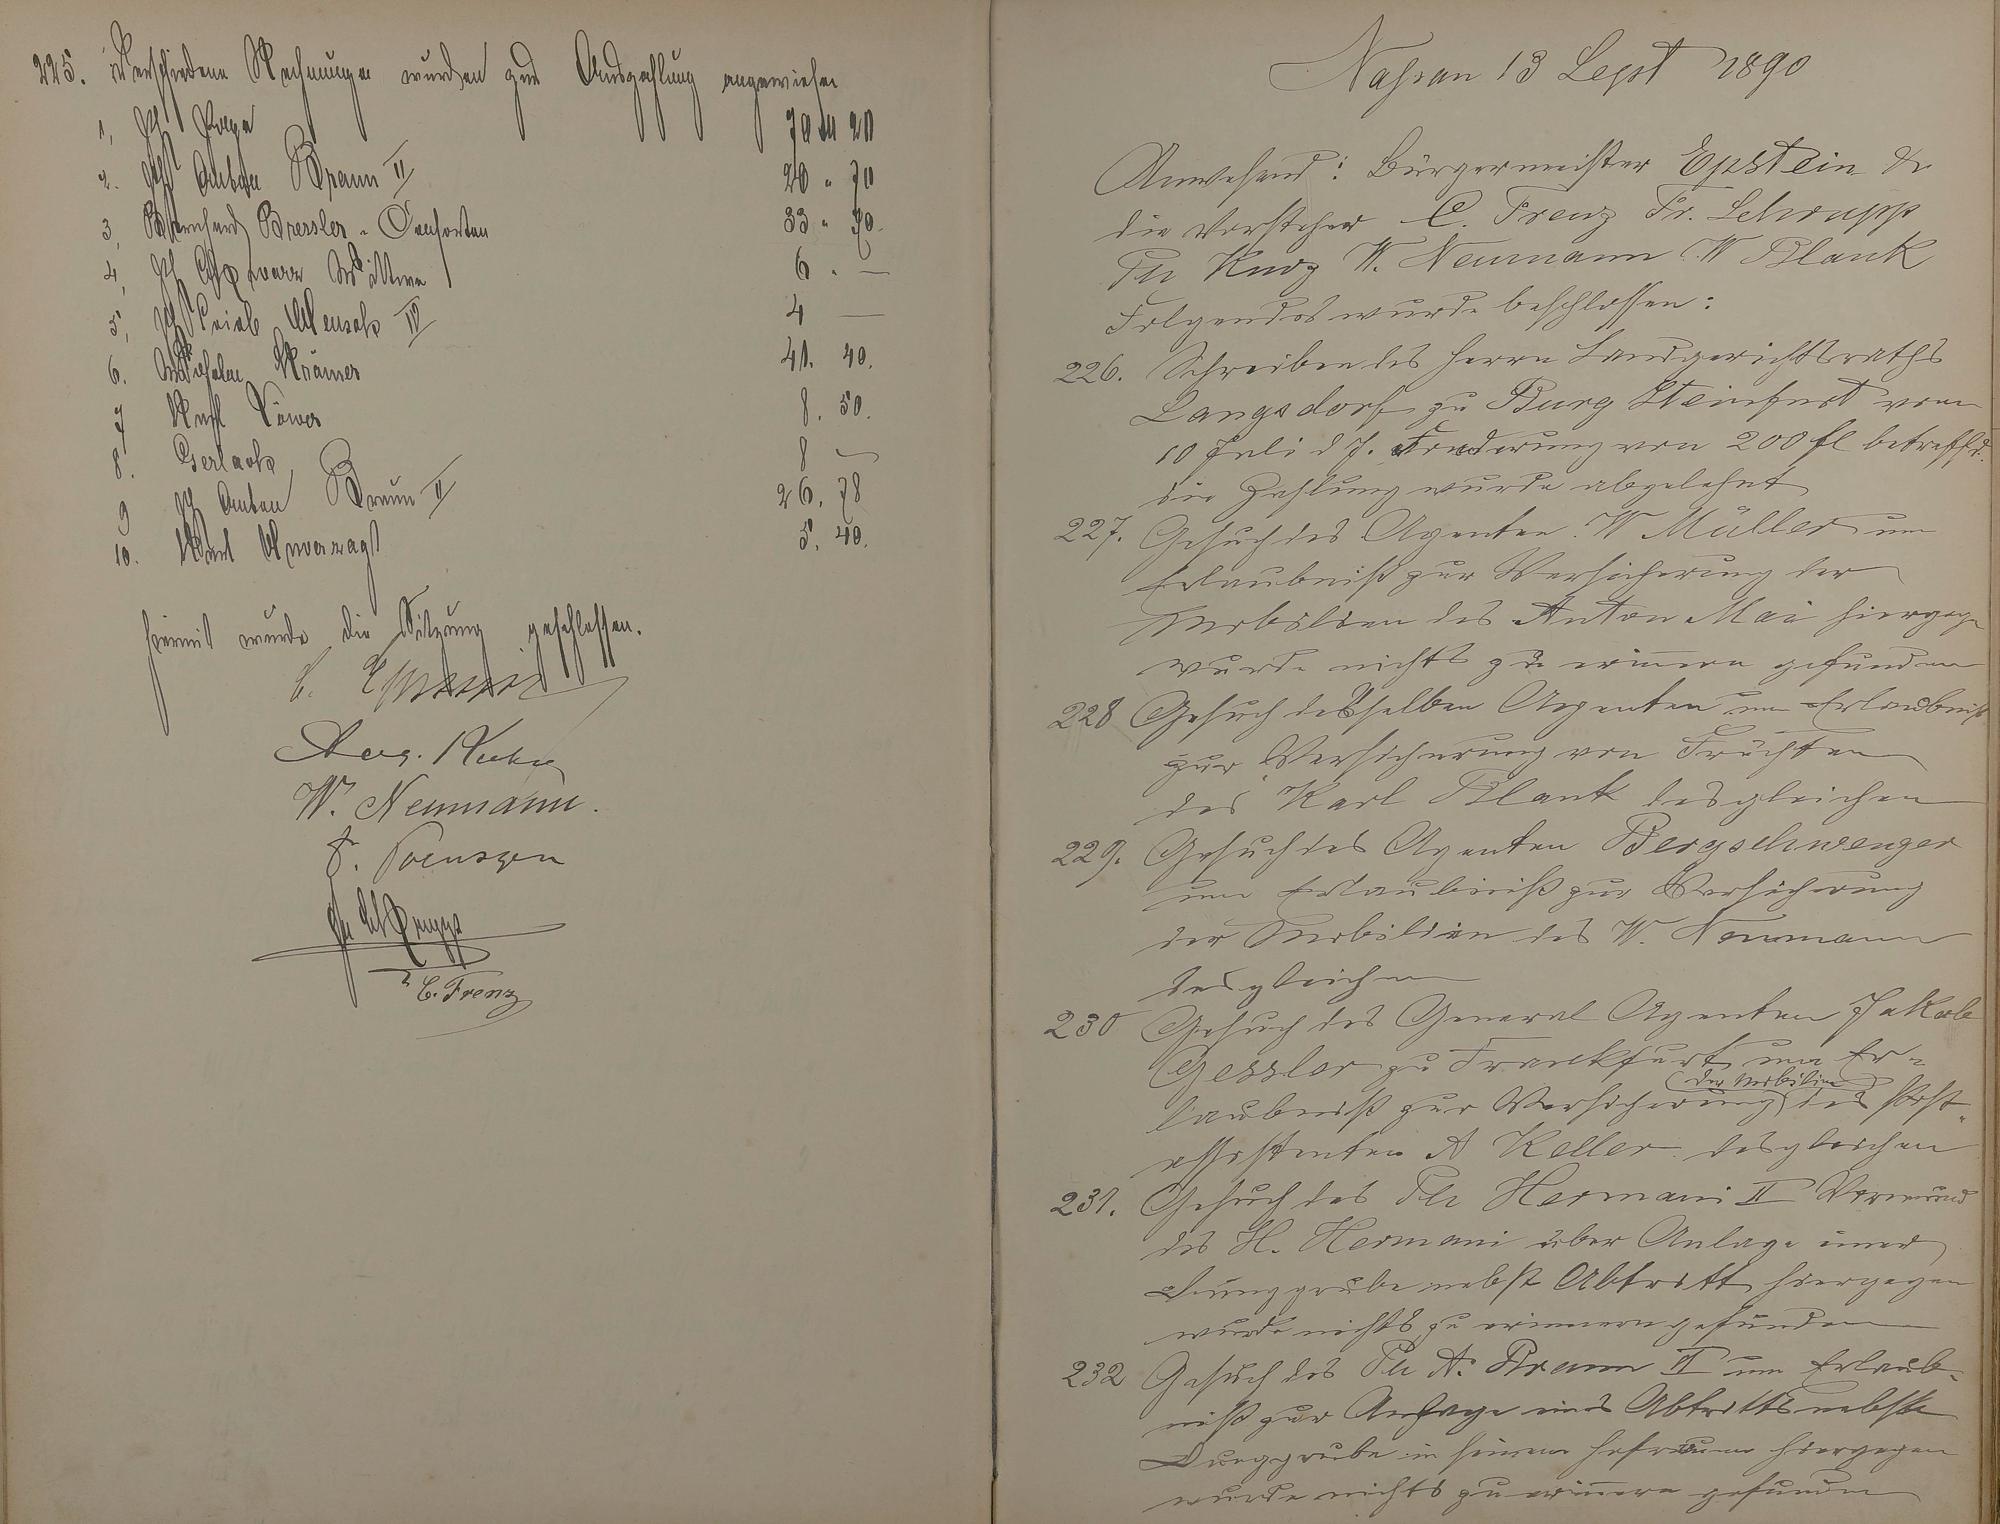 225. Verschiedene Rechnungen wurden zur Auszahlung angewiesen
1, Ph 70 M 20
2. Ph Anton Braun II 20 " 70
3, Bernhard Bressler - Consorten 33 " 70.
4, Ph Schwarz Wittwe 6 . —
5, Ph IV 4 —
6. Wilhelm Krämer 41. 40.
7 Karl Löwer 8. 50.
8. Gerlach 8 —
9 Ph Anton Braun II 26. 78
10. Karl Unverzagt 5. 40.
Hiermit wurde die Sitzung geschlossen.
C. Epstein
Aug. Kuhn
W. Neumann.
F. Poensgen
Fr Schrupp
C. Frenz
Nassau 13 Sept 1890
Anwesend: Bürgermeister Epstein &
die Vorsteher C. Frenz Fr. Schrupp
Ph Kurz W. Neumann W Blank
Folgendes wurde beschlossen:
226. Schreiben des Herrn Landgerichtsraths
Langsdorf zu Burg Steinfurt vom
10 Juli d J. Forderung von 200 fl betreffd.
die Zahlung wurde abgelehnt
227. Gesuch des Agenten W Müller um
Erlaubniß zur Versicherung der
Mobilien des Anton Mai hiergegen
wurde nichts zu erinnern gefunden
228 Gesuch desselben Agenten um Erlaubniß
zur Versicherung von Früchten
des Karl Blank desgleichen
229. Gesuch des Agenten Bergschwenger
um Erlaubniß zur Versicherung
der Mobilien des W. Neumann
desgleichen
230 Gesuch des General Agenten Jakob
Gessler zu Frankfurt um Er-
der Mobilien
laubniß zur Versicherung des Post-
assistenten A Keller desgleichen
231. Gesuch des Ph Hermani II Vormund
des H. Hermani über Anlage einer
Dunggrube nebst Abtritt hiergegen
wurde nichts zu erinnern gefunden
232 Gesuch des Ph A. Braun II um Erlaub-
niß zur Anlage eines Abtritts nebst
Dunggrube in seinem Hofraum hiergegen
wurde nichts zu erinnern gefunden